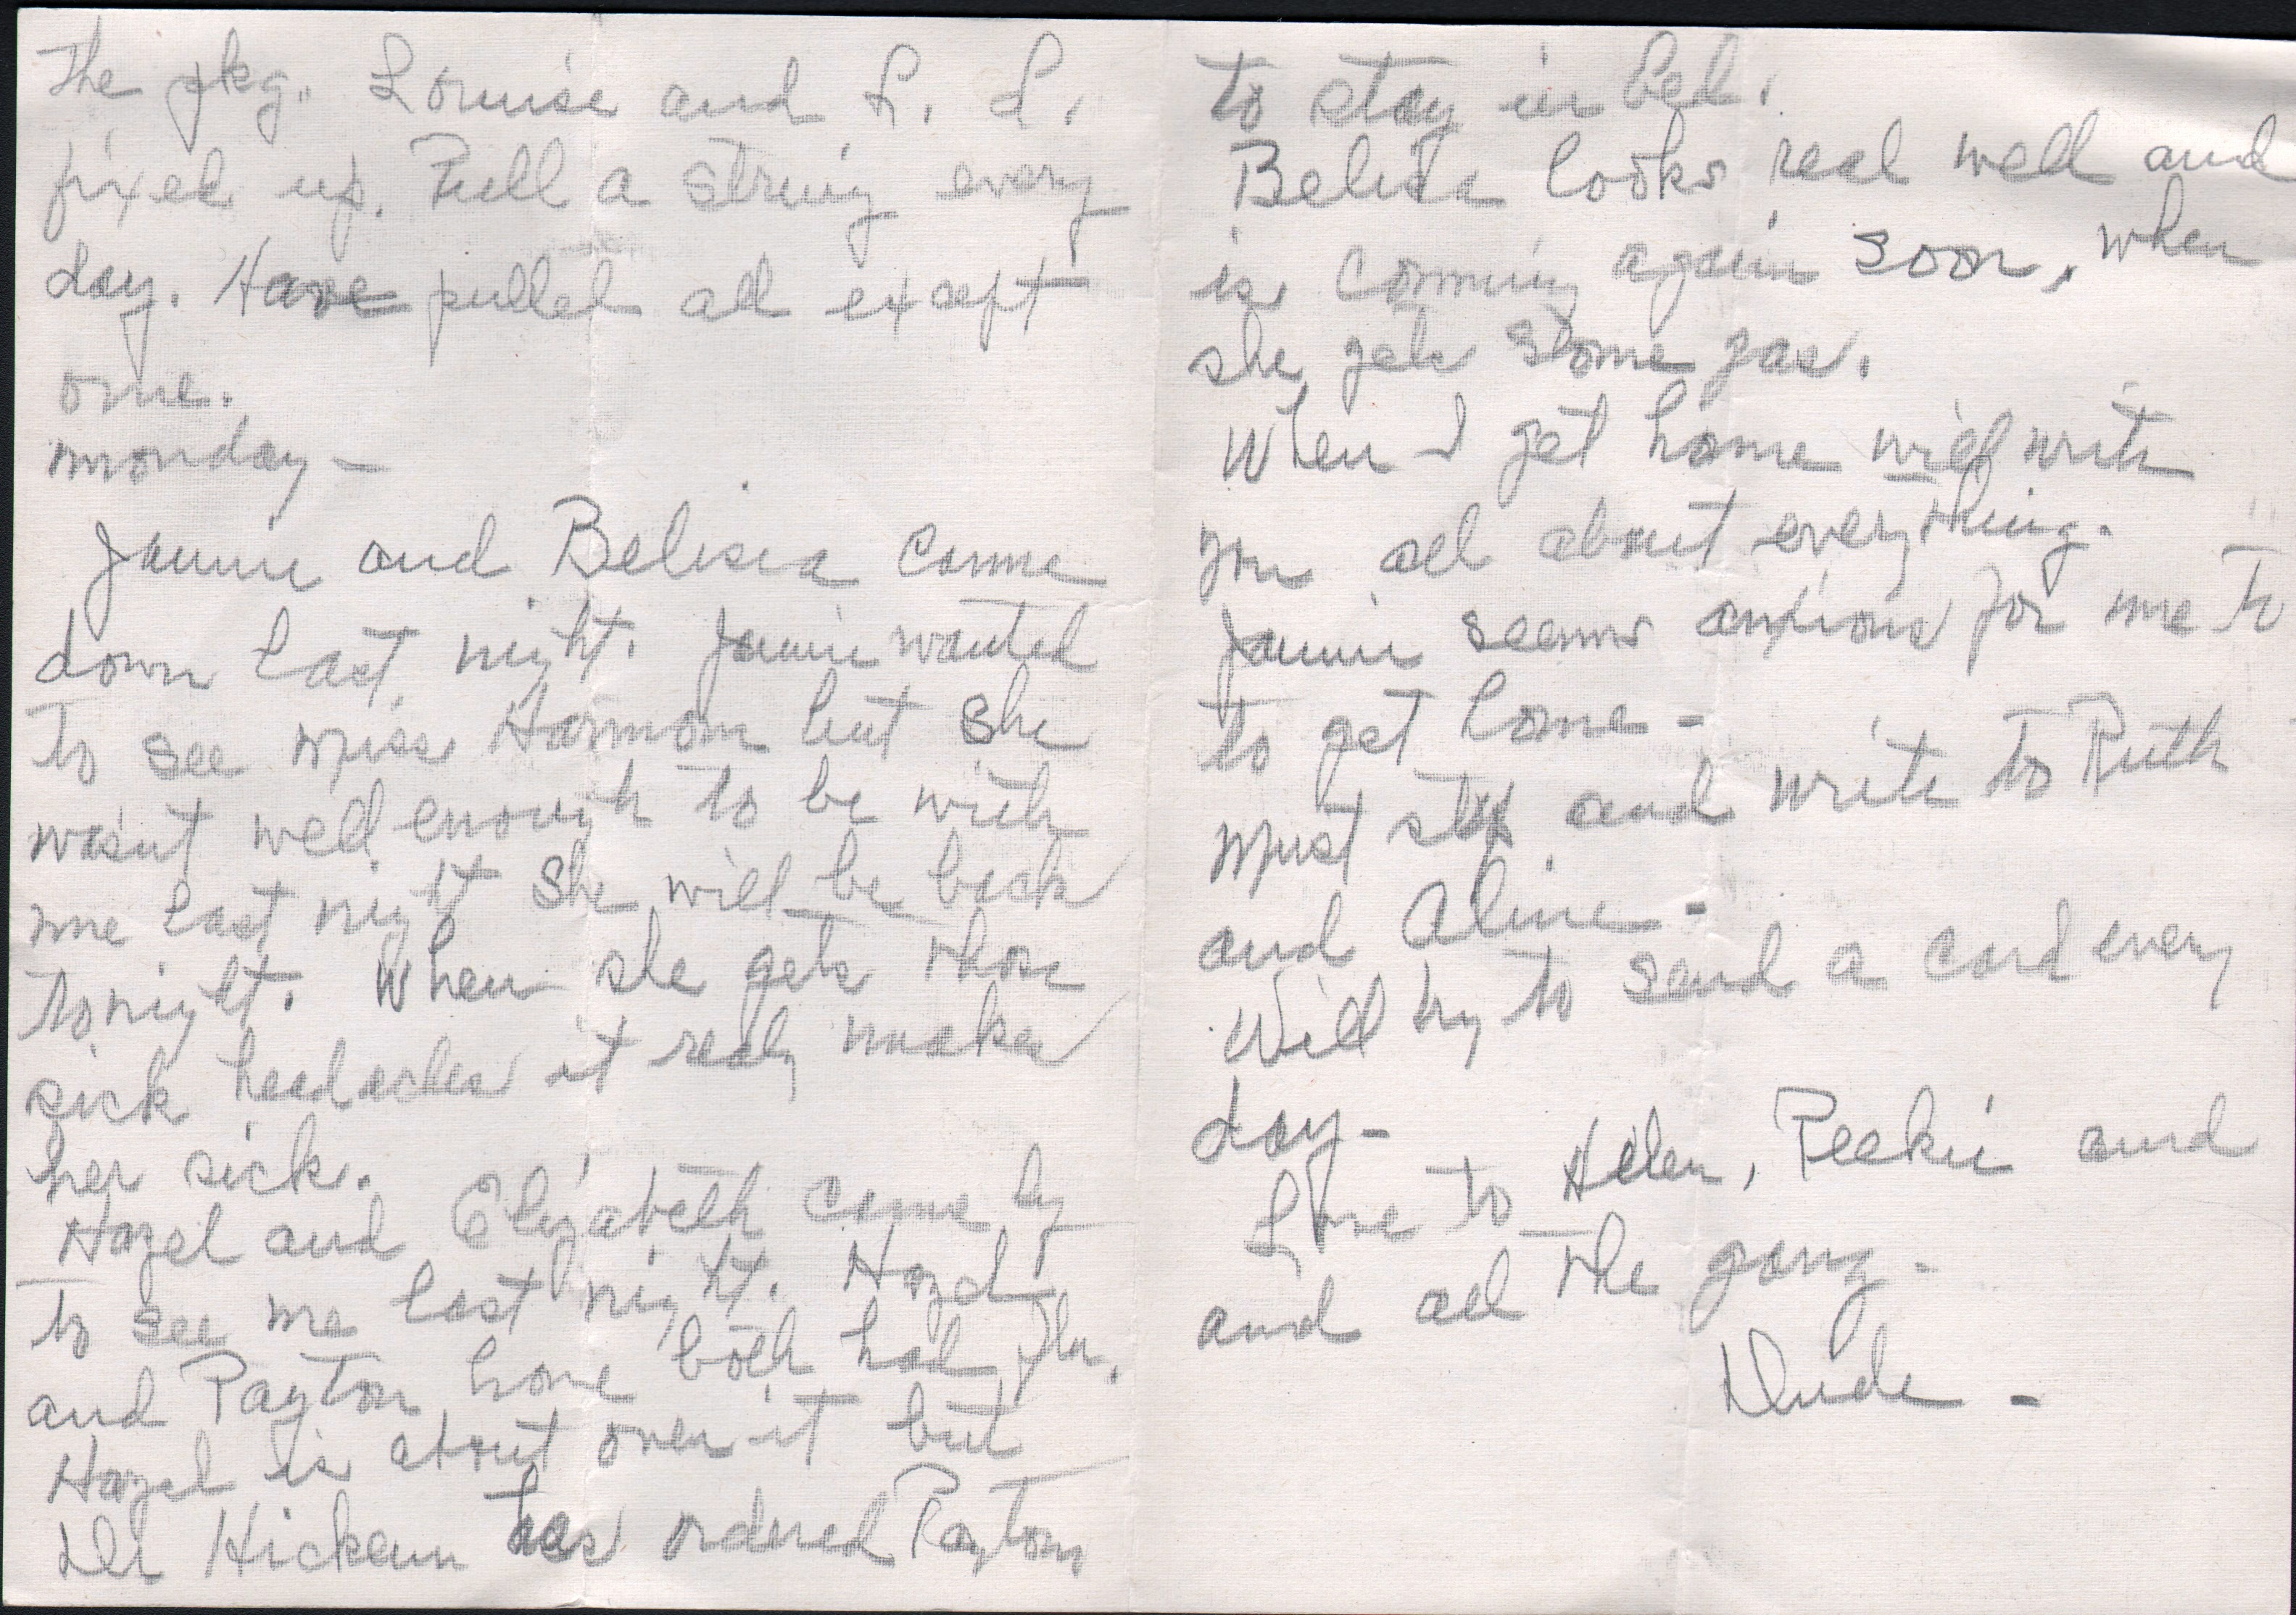 The pkg. Louise and L. L.
fixed up. Pull a string every
day. Have pulled all except
one.
Monday –
Jamie and Belisia came
down last night. Jamie wanted
to see Miss Harmon but she
wasnt well enough to be with
me last night she will be back
tonight. When she gets those
sick headaches it realy makes
her sick.
Hazel and Elizabeth came by
to see me last night. Hazel
and Payton have both had flu.
Hazel is about over it but
Dr has ordered Payton
to stay in bed.
Belisia looks real well and
is coming again soon, when
she gets some gas.
When I get home will write
you all about everything.
Jamie seems anxious for me to
to get home –
Must stop and write to Ruth
and Aline –
Will try to send a card every
day –
Love to Helen, Peekie and
and all the gang –
Dude –